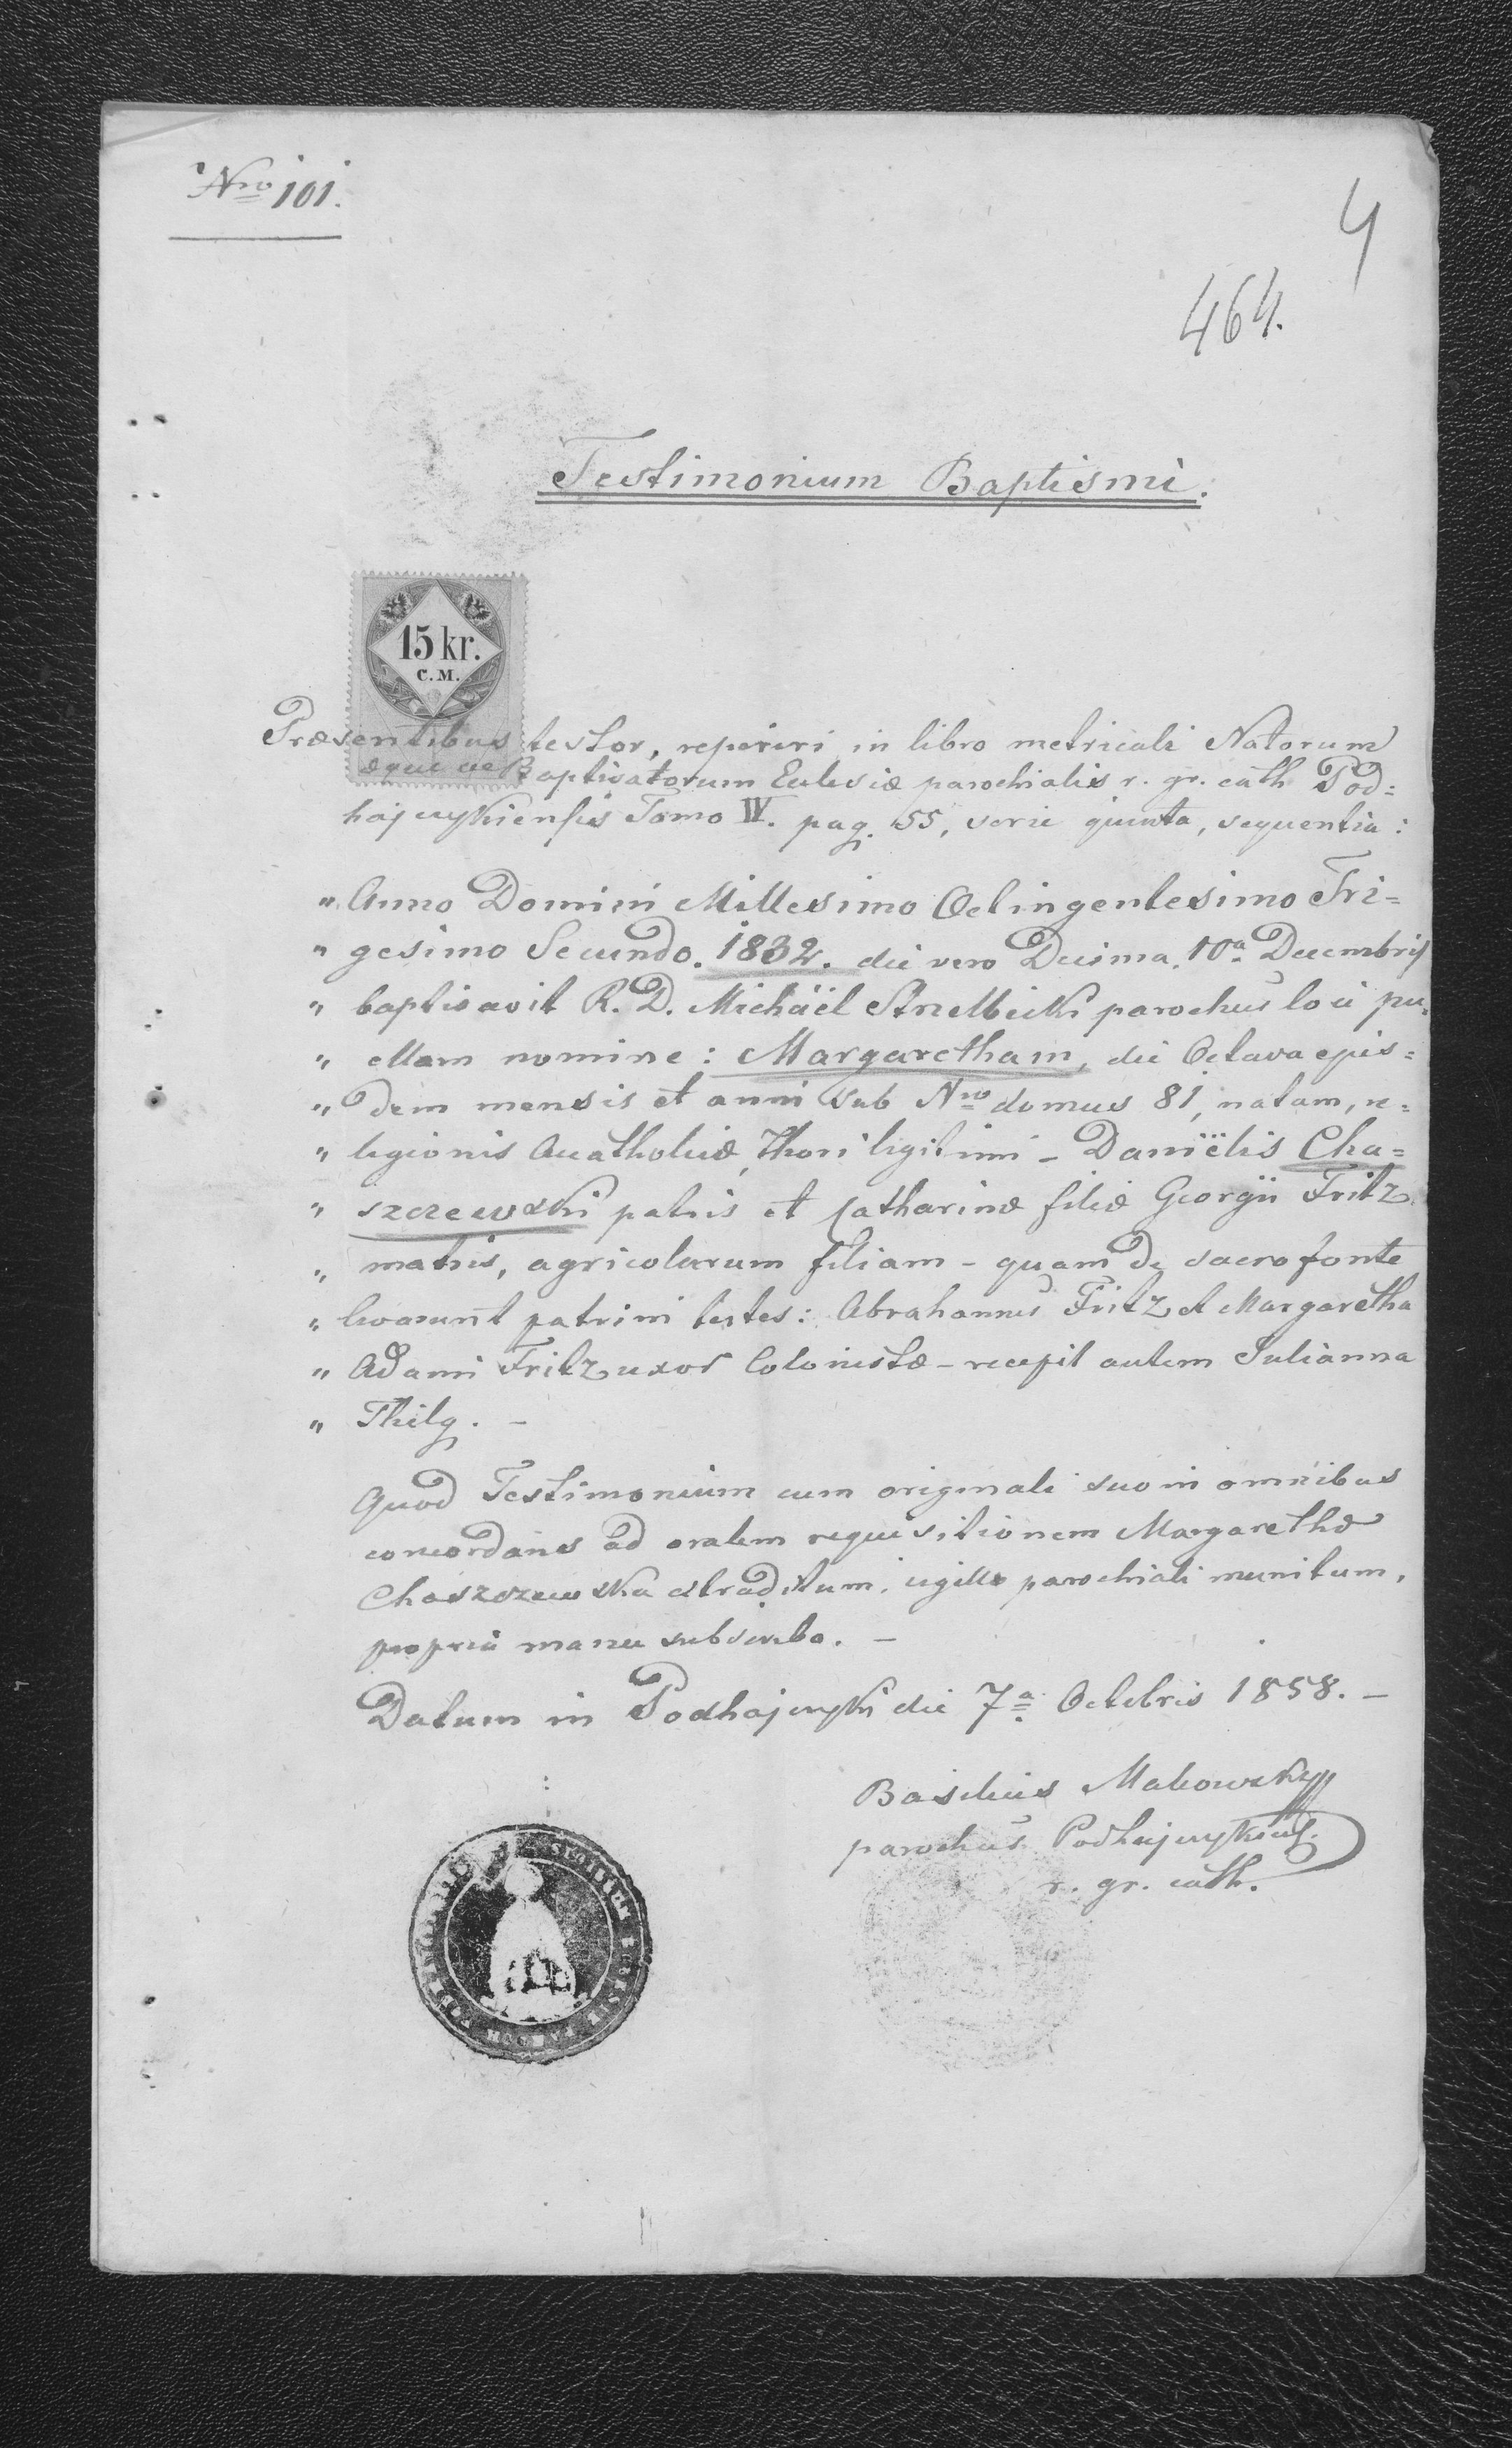 Nro 101.
4
464.
Testimonium Baptismi.
15 kr.
C.M.
Præsentibus testor, reperiri in libro metricali Natorum
æque ac Baptisatorum Eclesiæ parochialis r. gr. cath Pod=
hajcykiensis Tomo IV. pag. 55, serie quinta, sequentia:
" Anno Domini Millesimo Octingentesimo Tri=
" gesimo Secundo. 1832. die vero Decima. 10a Decembris
" baptisavit R. D. Michaël Strzelbicki parochus loci pu=
" ellam nomine: Margaretham, die Octava ejus=
" dem mensis et anni sub Nro domus 81, natam, re=
" ligionis Acatholicæ, Thori legitimi - Daniëlis Cha=
" szczewski patris et Catharinæ filiæ Georgii Fritz
" matris, agricolarum filiam - quam de sacro fonte
" levarunt patrini testes: Abrahamus Fritz et Margaretha
" Adami Fritz uxor Colonistæ - recepit autem Julianna
" Thilg. -
Quod Testimonium cum originali suo in omnibus
concordans ad oralem requisitionem Margarethæ
Chaszczewska extraditum, sigillo parochiali munitum,
propria manu subscribo. -
Datum in Podhajcyki die 7a Octobris 1858. -
Basilius Makowsky
parochus Podhajcykiens.
r. gr. cath.
SIGILLUM ECCLESIÆ PAROCH